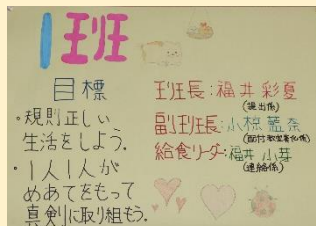 1班
目標
・規則正しい
生活をしよう.
・1人1人が
めあてをもって
真剣に取り組もう.
班長:福井 彩夏
(提出係)
副班長:小椋 藍奈
(配付・教室美化係)
給食リーダー:福井 小芽
(連絡係)